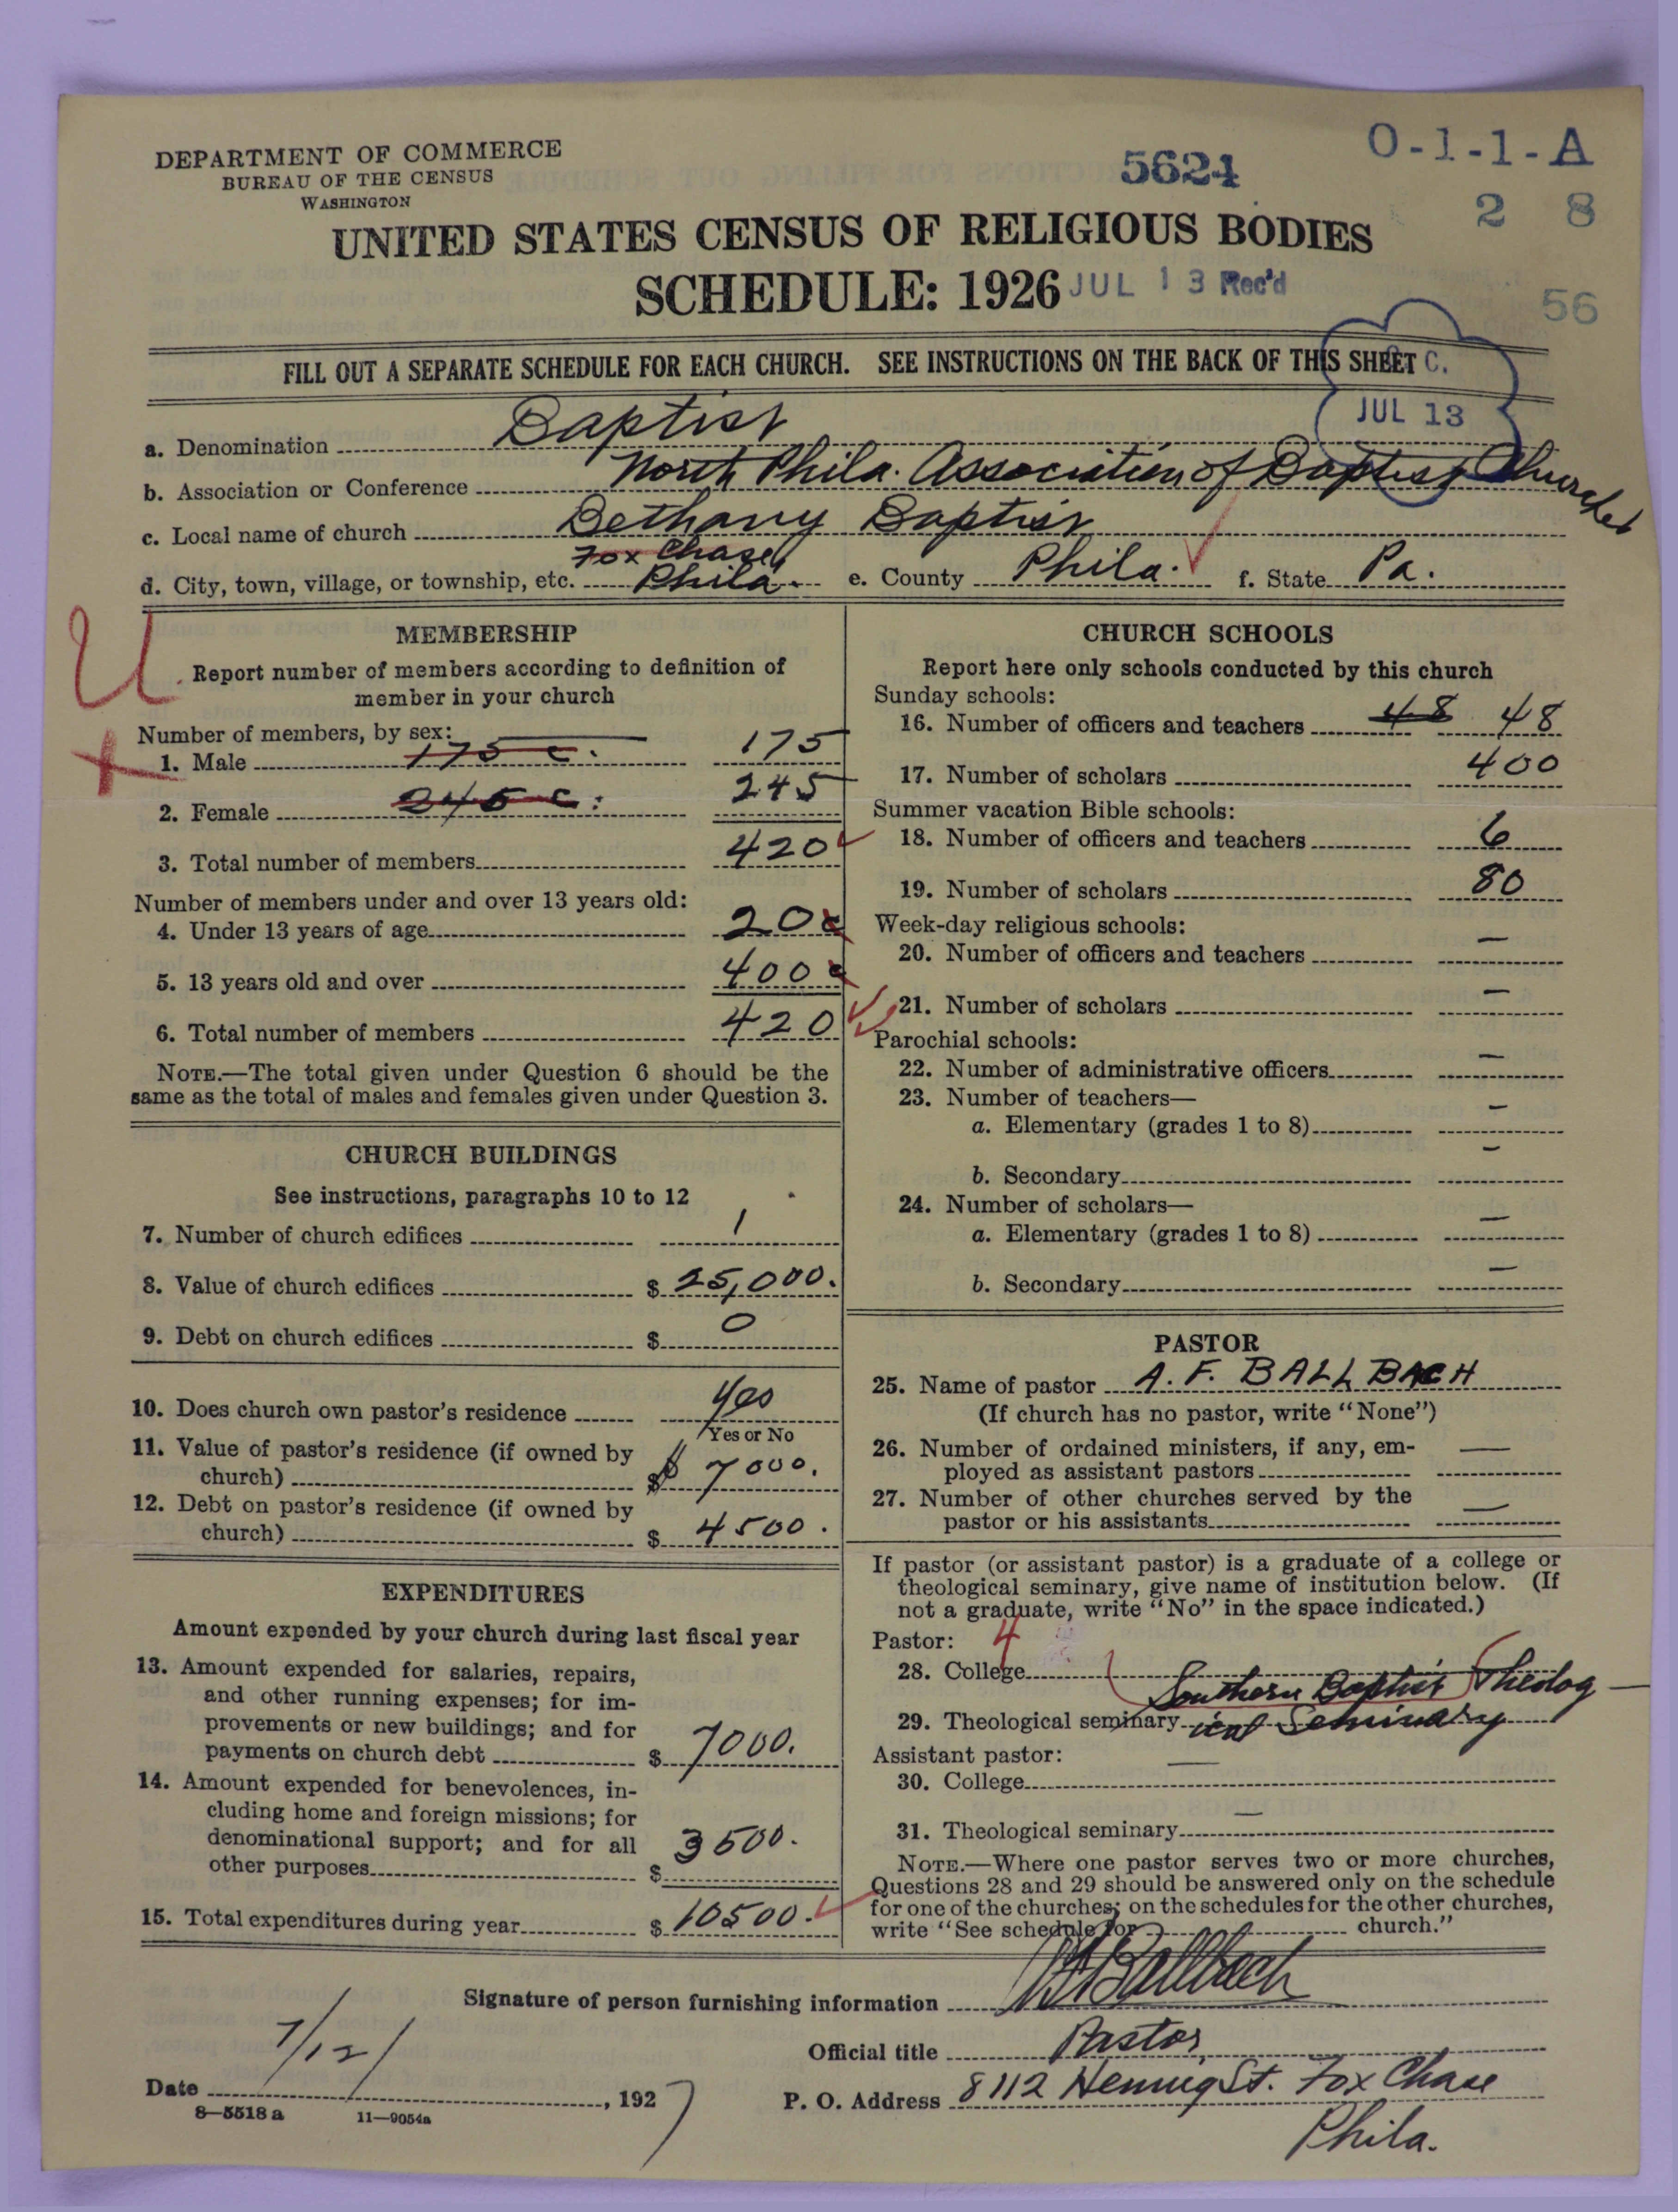 DEPARTMENT OF COMMERCE
BUREAU OF THE CENSUS
WASHINGTON
5624
O-1-1-A
2 8
UNITED STATES CENSUS OF RELIGIOUS BODIES
SCHEDULE: 1926
JUL 13 Rec'd
56
FILL OUT A SEPARATE SCHEDULE FOR EACH CHURCH. SEE INSTRUCTIONS ON THE BACK OF THIS SHEET
C.
JUL 13
a. Denomination Baptist
b. Association or Conference North Phila. Association of Baptist Churches
c. Local name of church Bethany Baptist
Fox Chase,
d. City, town, village, or township, etc. Phila. e. County Phila. f. State Pa.
U
MEMBERSHIP
Report number of members according to definition of
member in your church
Number of members, by sex:
1. Male 175 c. 175
2. Female 245 c. 245
3. Total number of members 420
Number of members under and over 13 years old:
4. Under 13 years of age 20 c
5. 13 years old and over 400 c
6. Total number of members 420
NOTE.—The total given under Question 6 should be the
same as the total of males and females given under Question 3.
CHURCH BUILDINGS
See instructions, paragraphs 10 to 12
7. Number of church edifices 1
8. Value of church edifices $ 25,000.
9. Debt on church edifices $ 0
10. Does church own pastor's residence Yes
Yes or No
11. Value of pastor's residence (if owned by
church) $ 7000.
12. Debt on pastor's residence (if owned by
church) $ 4500.
EXPENDITURES
Amount expended by your church during last fiscal year
13. Amount expended for salaries, repairs,
and other running expenses; for im-
provements or new buildings; and for
payments on church debt $ 7000.
14. Amount expended for benevolences, in-
cluding home and foreign missions; for
denominational support; and for all
other purposes $ 3500.
15. Total expenditures during year $ 10500.
CHURCH SCHOOLS
Report here only schools conducted by this church
Sunday schools:
16. Number of officers and teachers 48 48
17. Number of scholars 400
Summer vacation Bible schools:
18. Number of officers and teachers 6
19. Number of scholars 80
Week-day religious schools:
20. Number of officers and teachers —
21. Number of scholars —
Parochial schools:
22. Number of administrative officers —
23. Number of teachers—
a. Elementary (grades 1 to 8) —
b. Secondary —
24. Number of scholars—
a. Elementary (grades 1 to 8) —
b. Secondary —
PASTOR
25. Name of pastor A. F. BALLBACH
(If church has no pastor, write "None")
26. Number of ordained ministers, if any, em-
ployed as assistant pastors —
27. Number of other churches served by the
pastor or his assistants —
If pastor (or assistant pastor) is a graduate of a college or
theological seminary, give name of institution below. (If
not a graduate, write "No" in the space indicated.)
Pastor: 4
28. College
Southern Baptist Theolog-
29. Theological seminary ical Seminary
Assistant pastor:
30. College —
31. Theological seminary —
NOTE.—Where one pastor serves two or more churches,
Questions 28 and 29 should be answered only on the schedule
for one of the churches; on the schedules for the other churches,
write "See schedule for church."
Signature of person furnishing information A F Ballbach
Official title Pastor,
Date 7/12/, 1927
P. O. Address 8112 Hennig St. Fox Chase
Phila.
8—5518 a 11—9054a